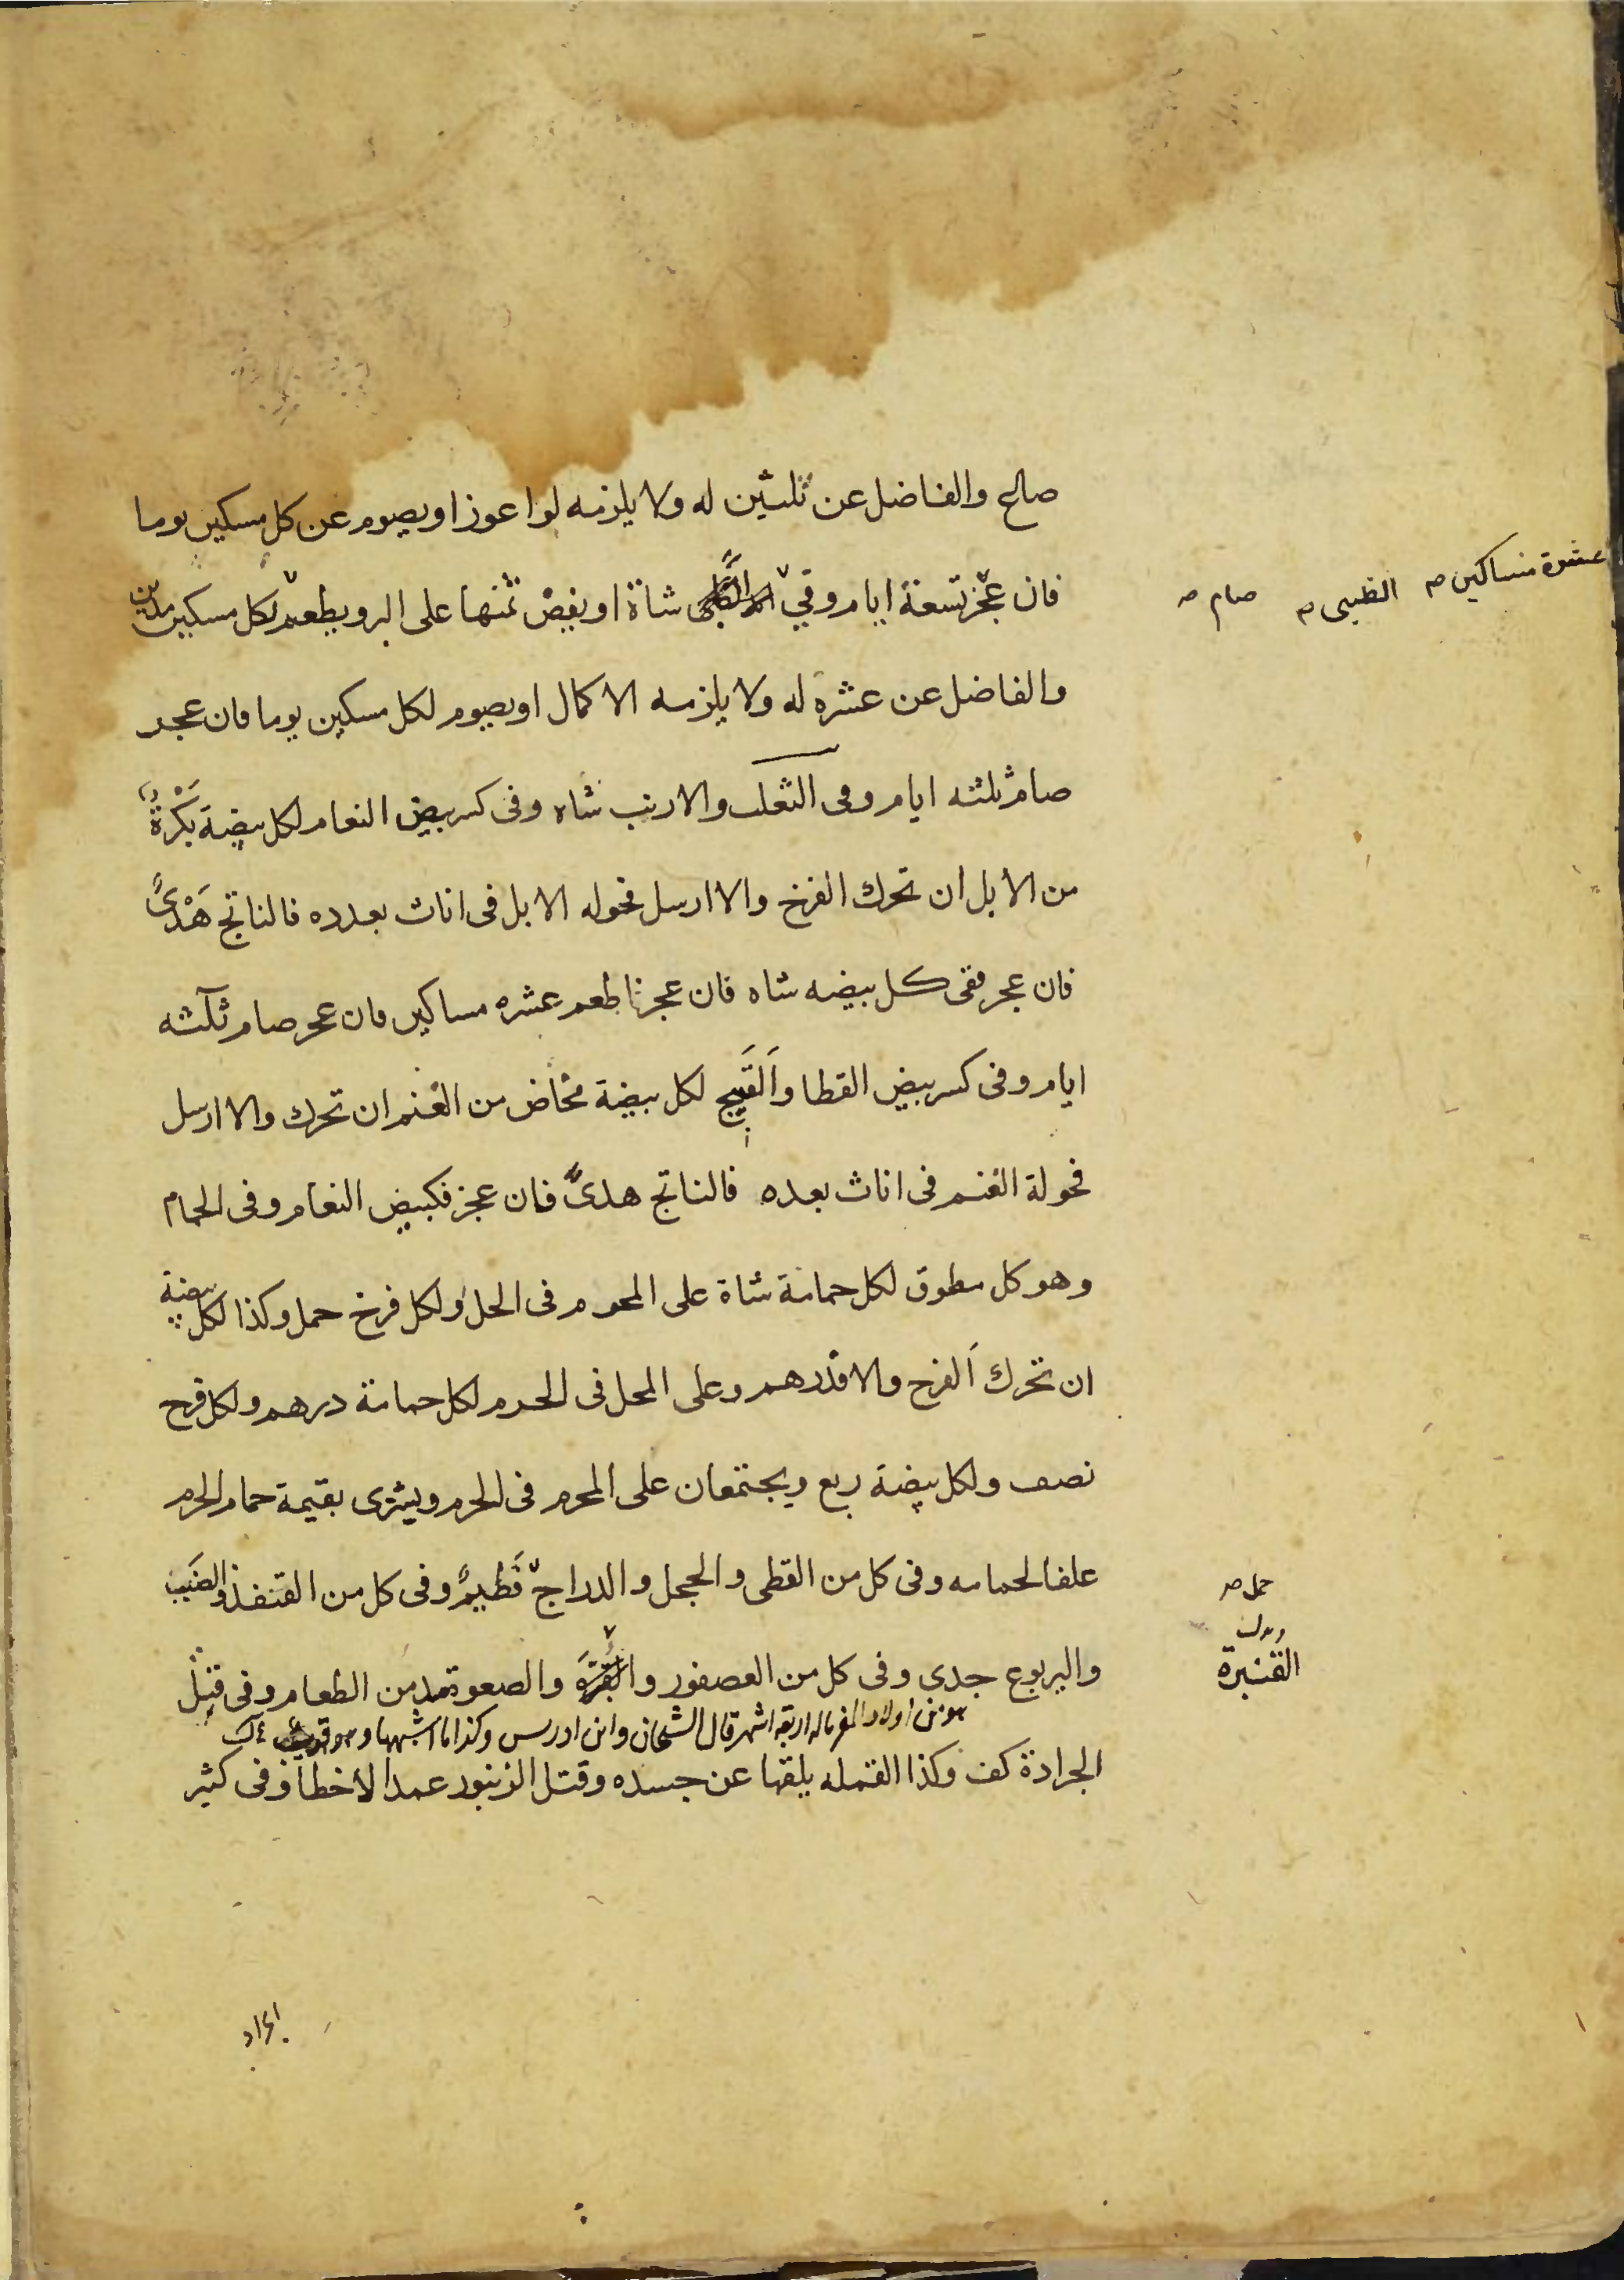 صاع والفاضل عن ثلثين له ولا يلزمه لو اعوز او يصوم عن كل مسكين يوما
فان عجز تسعة ايام وفي شاة او يفض ثمنها على البر ويطعم لكل مسكين مدين
والفاضل عن عشره له ولا يلزمه الاكمال او يصوم لكل مسكين يوما فان عجز
صام ثلثه ايام وفى الثعلب والارنب شاه وفى كسر بيض النعام لكل بيضة بَكْرَةٌ
من الابل ان تحرك الفرخ والا ارسل فحوله الابل فى اناث بعدده فالناتج هَدْىٌ
فان عجز ففى كل بيضه شاه فان عجز اطعم عشره مساكين فان عجز صام ثلثه
ايام وفى كسر بيض القطا والقَبَج لكل بيضة مخاض من الغنم ان تحرك والا ارسل
فحولة الغنم فى اناث بعدده فالناتج هدىٌ فان عجز فكبيض النعام وفى الحمام
وهو كل مطوق لكل حمامة شاة على المحرم فى الحل ولكل فرخ حمل وكذا لكل بيضة
ان تحرك الفرخ والا فدرهم وعلى المحل فى الحرم لكل حمامة درهم ولكل فرخ
نصف ولكل بيضة ربع ويجتمعان على المحرم فى الحرم ويشترى بقيمة حمام الحرم
علفا لحمامه وفى كل من القطى والحجل والدراج فَطيمٌ وفى كل من القنفذ والضَب
واليربوع جدى وفى كل من العصفور والقبّرَه والصعوة مد من الطعام وفى قتل
هو من اولاد المعز ماله اربعة اشهر قال الشيخان وابن ادريس وكذا ما اشبهها وهو قريب
الجرادة كف وكذا القمله يلقيها عن جسده وقتل الزنبور عمدا لاخطأ وفى كثير
عشرة مساكين صـ
الظبى صـ
صام صـ
حمل صـ
القنبرة
الجراد